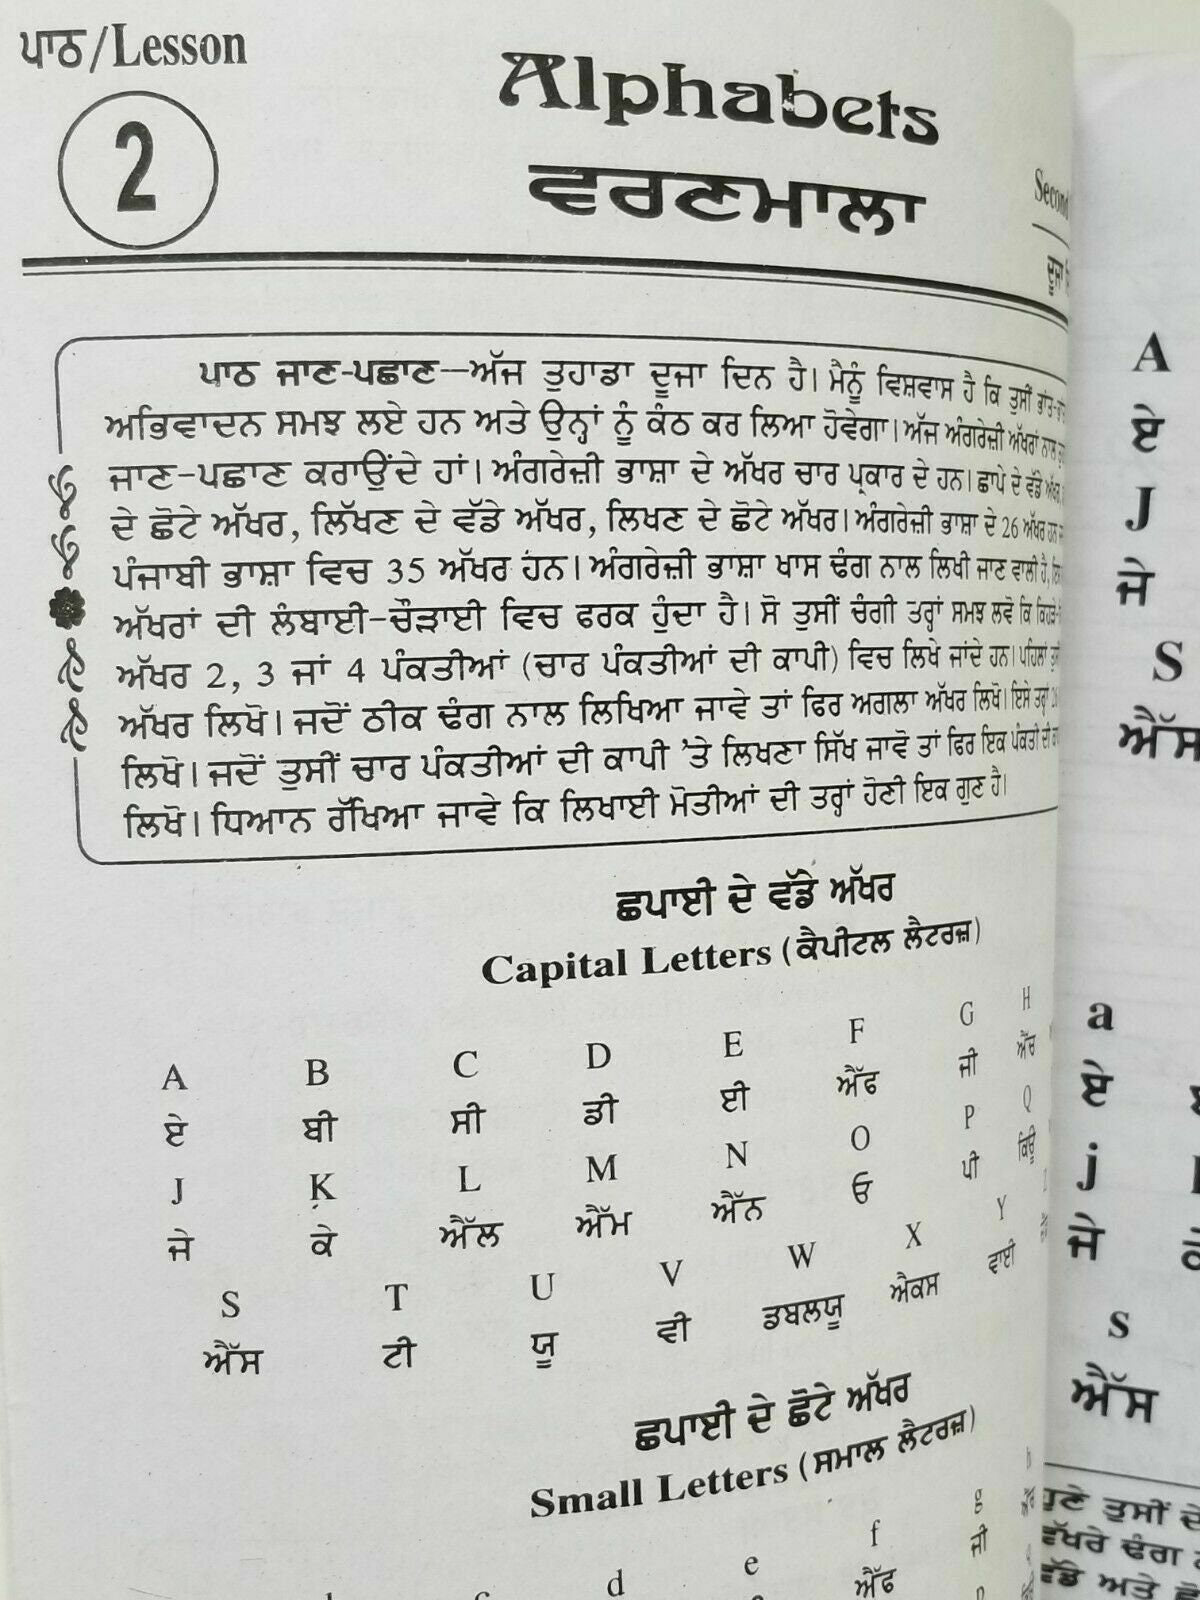 ਪਾਠ/Lesson
2
Alphabets
ਵਰਣਮਾਲਾ
Second
ਦੂਜਾ
ਪਾਠ ਜਾਣ-ਪਛਾਣ—ਅੱਜ ਤੁਹਾਡਾ ਦੂਜਾ ਦਿਨ ਹੈ। ਮੈਨੂੰ ਵਿਸ਼ਵਾਸ ਹੈ ਕਿ ਤੁਸੀਂ
ਅਭਿਵਾਦਨ ਸਮਝ ਲਏ ਹਨ ਅਤੇ ਉਨ੍ਹਾਂ ਨੂੰ ਕੰਠ ਕਰ ਲਿਆ ਹੋਵੇਗਾ। ਅੱਜ ਅੰਗਰੇਜ਼ੀ ਅੱਖਰਾਂ ਨਾਲ
ਜਾਣ-ਪਛਾਣ ਕਰਾਉਂਦੇ ਹਾਂ। ਅੰਗਰੇਜ਼ੀ ਭਾਸ਼ਾ ਦੇ ਅੱਖਰ ਚਾਰ ਪ੍ਰਕਾਰ ਦੇ ਹਨ। ਛਾਪੇ ਦੇ ਵੱਡੇ
ਦੇ ਛੋਟੇ ਅੱਖਰ, ਲਿੱਖਣ ਦੇ ਵੱਡੇ ਅੱਖਰ, ਲਿਖਣ ਦੇ ਛੋਟੇ ਅੱਖਰ। ਅੰਗਰੇਜ਼ੀ ਭਾਸ਼ਾ ਦੇ 26 ਅੱਖਰ ਹਨ
ਪੰਜਾਬੀ ਭਾਸ਼ਾ ਵਿਚ 35 ਅੱਖਰ ਹਨ। ਅੰਗਰੇਜ਼ੀ ਭਾਸ਼ਾ ਖਾਸ ਢੰਗ ਨਾਲ ਲਿਖੀ ਜਾਣ ਵਾਲੀ ਹੈ,
ਅੱਖਰਾਂ ਦੀ ਲੰਬਾਈ-ਚੌੜਾਈ ਵਿਚ ਫਰਕ ਹੁੰਦਾ ਹੈ। ਸੋ ਤੁਸੀਂ ਚੰਗੀ ਤਰ੍ਹਾਂ ਸਮਝ ਲਵੋ ਕਿ
ਅੱਖਰ 2, 3 ਜਾਂ 4 ਪੰਕਤੀਆਂ (ਚਾਰ ਪੰਕਤੀਆਂ ਦੀ ਕਾਪੀ) ਵਿਚ ਲਿਖੇ ਜਾਂਦੇ ਹਨ। ਪਹਿਲਾਂ
ਅੱਖਰ ਲਿਖੋ। ਜਦੋਂ ਠੀਕ ਢੰਗ ਨਾਲ ਲਿਖਿਆ ਜਾਵੇ ਤਾਂ ਫਿਰ ਅਗਲਾ ਅੱਖਰ ਲਿਖੋ। ਇਸੇ ਤਰ੍ਹਾਂ
ਲਿਖੋ। ਜਦੋਂ ਤੁਸੀਂ ਚਾਰ ਪੰਕਤੀਆਂ ਦੀ ਕਾਪੀ 'ਤੇ ਲਿਖਣਾ ਸਿੱਖ ਜਾਵੋ ਤਾਂ ਫਿਰ ਇਕ ਪੰਕਤੀ ਦੀ
ਲਿਖੋ। ਧਿਆਨ ਰੱਖਿਆ ਜਾਵੇ ਕਿ ਲਿਖਾਈ ਮੋਤੀਆਂ ਦੀ ਤਰ੍ਹਾਂ ਹੋਣੀ ਇਕ ਗੁਣ ਹੈ।
ਛਪਾਈ ਦੇ ਵੱਡੇ ਅੱਖਰ
Capital Letters (ਕੈਪੀਟਲ ਲੈਟਰਜ਼)
A B C D E F G H
ਏ ਬੀ ਸੀ ਡੀ ਈ ਐੱਫ ਜੀ ਐੱਚ
J K L M N O P Q
ਜੇ ਕੇ ਐੱਲ ਐੱਮ ਐੱਨ ਓ ਪੀ ਕਿਊ
S T U V W X Y
ਐੱਸ ਟੀ ਯੂ ਵੀ ਡਬਲਯੂ ਐਕਸ ਵਾਈ
ਛਪਾਈ ਦੇ ਛੋਟੇ ਅੱਖਰ
Small Letters (ਸਮਾਲ ਲੈਟਰਜ਼)
d e f g h
ਐੱਫ ਜੀ
A
ਏ
J
ਜੇ
S
ਐੱਸ
a
ਏ
j
ਜੇ
s
ਐੱਸ
ਹੁਣੇ ਤੁਸੀਂ ਦੇ
ਵੱਖਰੇ ਢੰਗ
ਵੱਡੇ ਅਤੇ